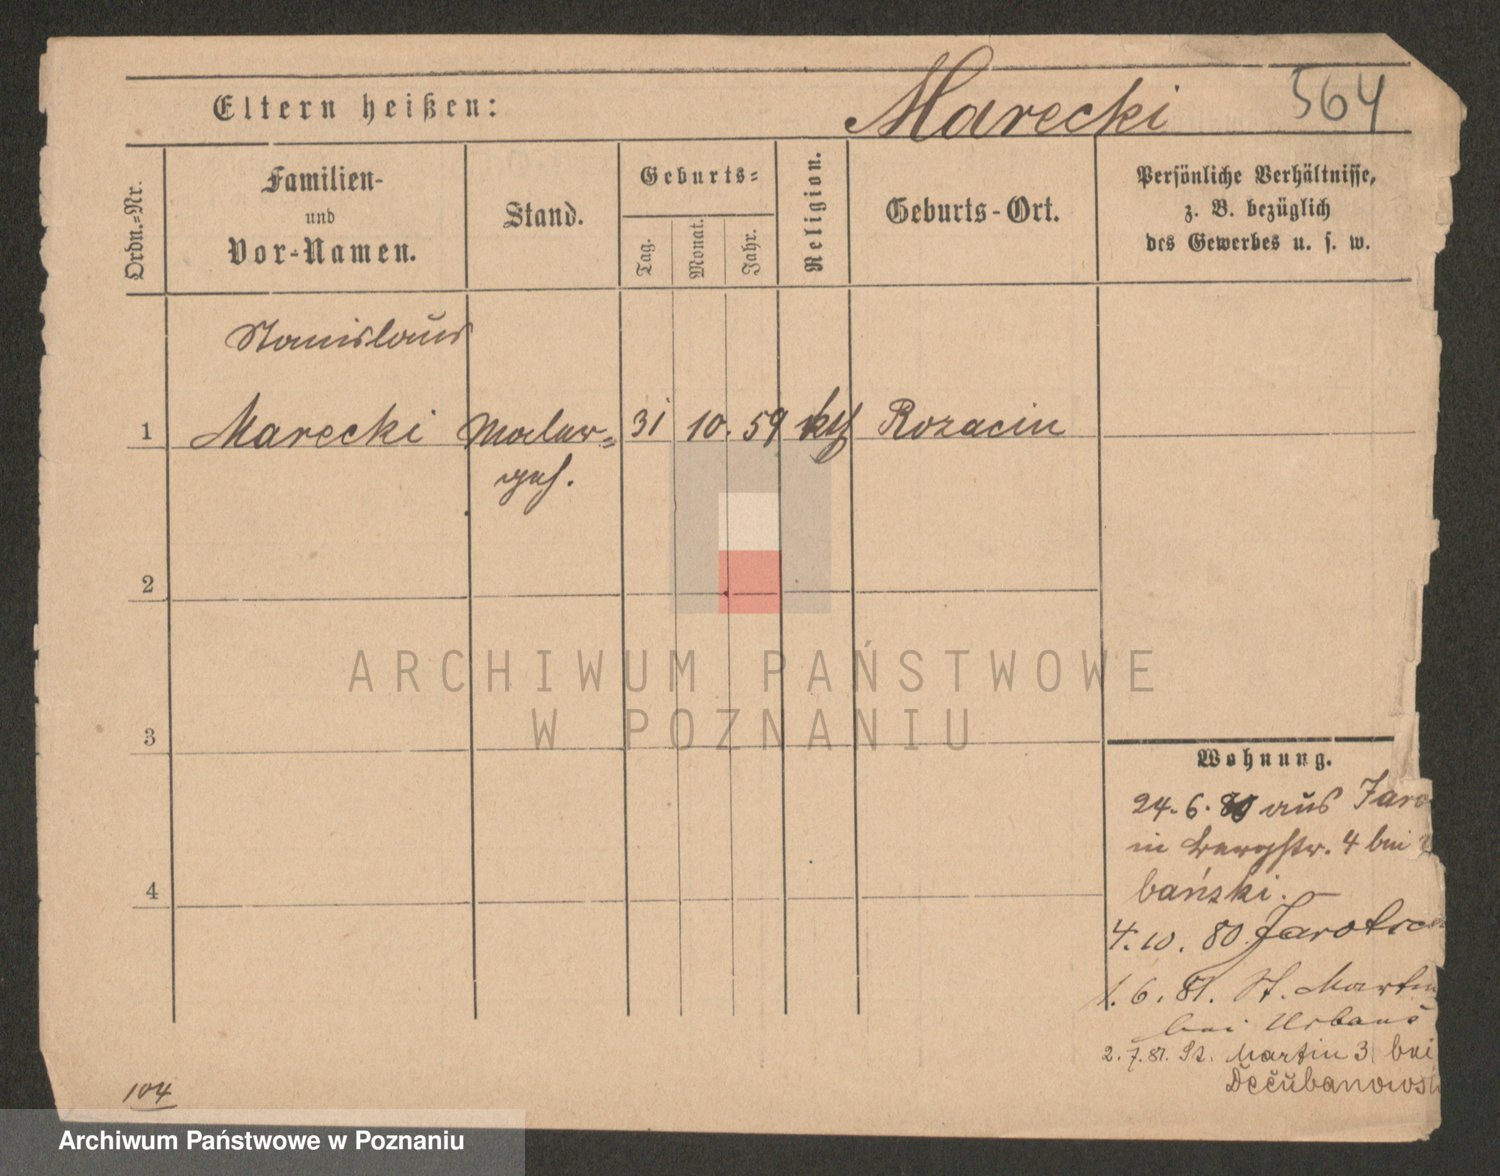 Eltern heißen: Marecki 564
Ordn.=Nr. Familien- und Vor-Namen. Stand. Geburts= Tag. Monat. Jahr. Religion. Geburts-Ort. Persönliche Verhältnisse, z. B. bezüglich des Gewerbes u. s. w.
Stanislaus
1 Marecki Maler= 31 10. 59 kth Rozacin
geh.
2
ARCHIWUM PAŃSTWOWE
W POZNANIU
3
Wohnung.
24. 6. 80 aus Jaro
in Bergstr. 4 bei
bański.
4
4. 10. 80 Jarotsch
1. 6. 81. St. Martin
bei Urbans
2. 7. 81. St. Martin 3 bei
104
Archiwum Państwowe w Poznaniu